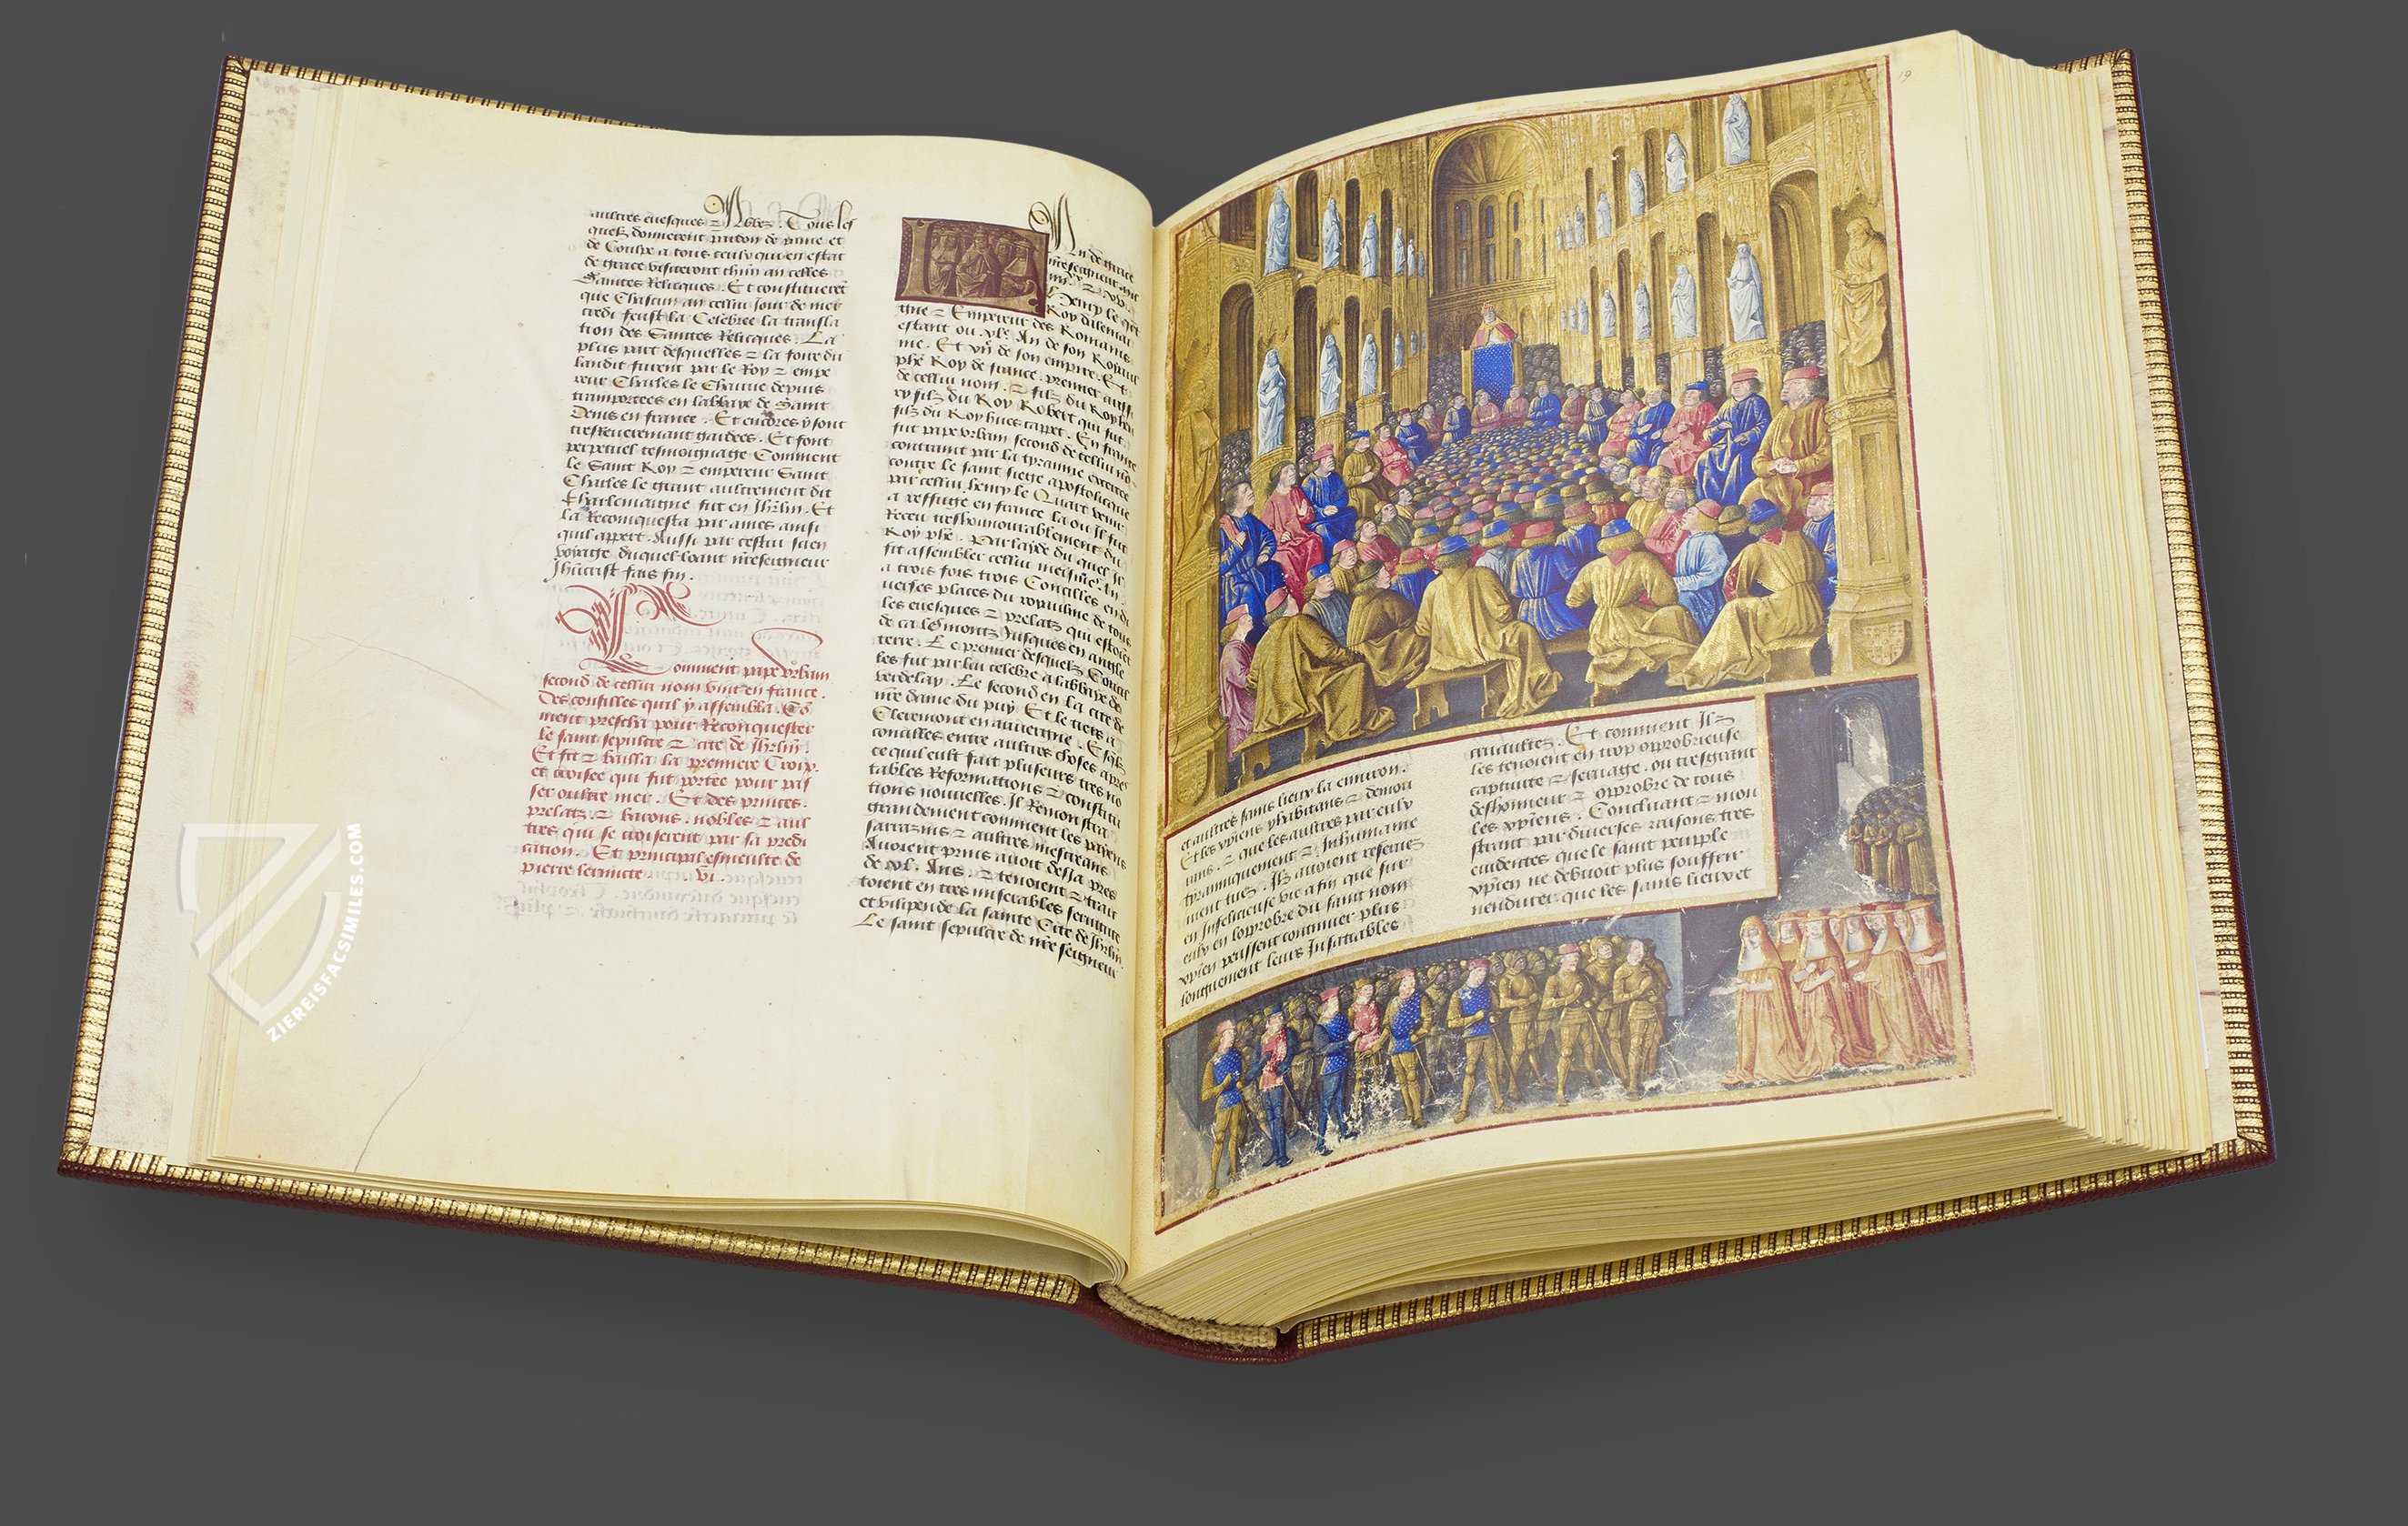 aultres euesques et Abbez. Tous les
quelz donnerent pardon de paine et
de Coulpe a tous ceulx qui en estat
de grace visiteront chun an celles
Saintes Relicques. Et constituerent
que Chascun an cellui Jour de mec
credi feust la Celebree la transla
tion des Saintes Relicques. La
plus part desquelles et la foire du
landit furent par le Roy et empe
reur Charles le Chauue depuis
transportees en labbaye de Saint
Denis en france. Et encores y sont
tresreueremant gardees. Et font
perpetuel tesmoignage Comment
le Saint Roy et empereur Saint
Charles le grant aultrement dit
Charlemaigne fut en Jhrlm. Et
la Reconquesta par armes ainsi
quil appert. Aussi par cestui sien
voyage duquel loant nreseigneur
Jhucrist fais fin.
Comment pape vrbain
second de cellui nom vint en france.
Des consilles quil y assembla. Co
ment prescha pour Reconquester
le saint sepulcre et cite de Jhrlm.
Et fit et bailla la premiere Croix.
et croisee qui fut portee pour pas
ser oultre mer. Et des princes.
prelatz et barons. nobles et aul
tres qui se croiserent par sa predi
cation. Et principal esmeute de
pierre lermitte. vi.
An de grace
nreseigneur mil
iiii xx et xv
Henry le quart
Roy dalemai
gne et Empereur des Romains
estant ou xle. An de son Royaul
me. Et vii de son empire. Et
phe Roy de france. premier aussi
de cellui nom. et filz du Roy hen
ry filz du Roy Robert qui fut
filz du Roy hues cappet. En france
fut pape vrbain second de cellui nom
contraint par la tyrannie exercee
contre le saint siege apostolicque
par cellui henry le Quart venir
a reffuge en france la ou Il fut
Receu treshonnourablement du
Roy phe. Par layde du quel Il
fit assembler cellui mesmes An
a trois fois trois Concilles en di
uerses places du royaulme de tous
les euesques et prelatz qui estoient
de ca les montz Jusques en angle
terre. Le premier desquelz Concil
les fut par lui celebre a labbaye de
verdelay. Le second en la cite de
nre dame du puy. Et le tiers a
Cleremont en auuergne. Esqlz
concilles entre aultres choses apres
ce quil eust fait plusieurs tres no
tables Reformations et constitu
tions nouuelles. Il Remonstra
grandement comment les payens
sarrazins et aultres mescreans
Auoient prins auoit dessa pres
de xl. Ans. et tenoient et trait
toient en tres miserables seruitute
et vilipende la sainte Cite de Jhrlm
Le saint sepulcre de nre seigneur
19
et aultres sains lieux la enuiron.
Et les xpiens y habitans et demou
rans. et que les aultres par eulx
tyranniquement et Inhumaine
ment tuez. Ilz auoient reseruez
en Infelicieuse vie a fin que sur
eulx en lopprobre du saint nom
xpien peussent continuer plus
longuement leurs Insaciables
cruaultez. Et comment Ilz
les tenoient en trop opprobrieuse
captiuite et seruage. ou tresgrant
deshonneur et opprobre de tous
les xpiens. Concluant et mon
strant par diuerses raisons tres
euidentes que le saint peuple
xpien ne debuoit plus souffrir
nendurer que les sains lieux et
ZIEREISFACSIMILES.COM